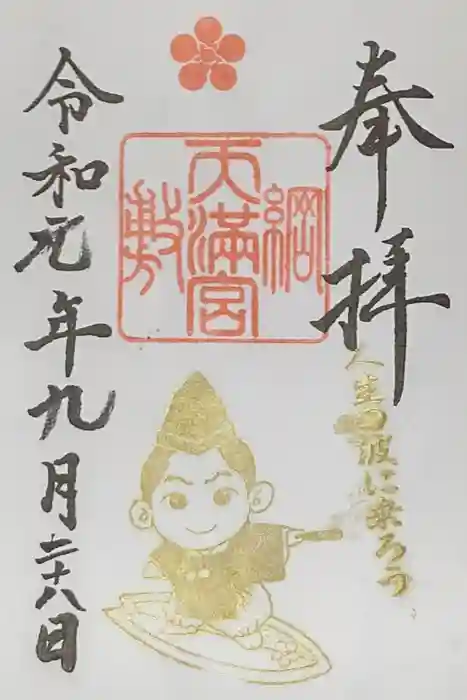 奉拝
綱敷天満宮
人生の波に乗ろう
令和元年九月二十八日